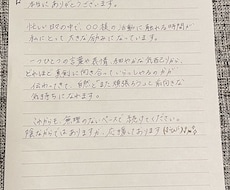 本当にありがとうございます。
忙しい日の中で、〇〇様の活動に触れる時間が
私にとって大きな励みになっています。
一つひとつの言葉や表情、細やかな気配りから、
どれほど真剣に向き合っていらっしゃるのかが
伝わってきて、自然と「また頑張ろう」と前向きな
気持ちになれます。
これからも、無理のないペースで続けてください。
陰ながらではありますが、応援しております